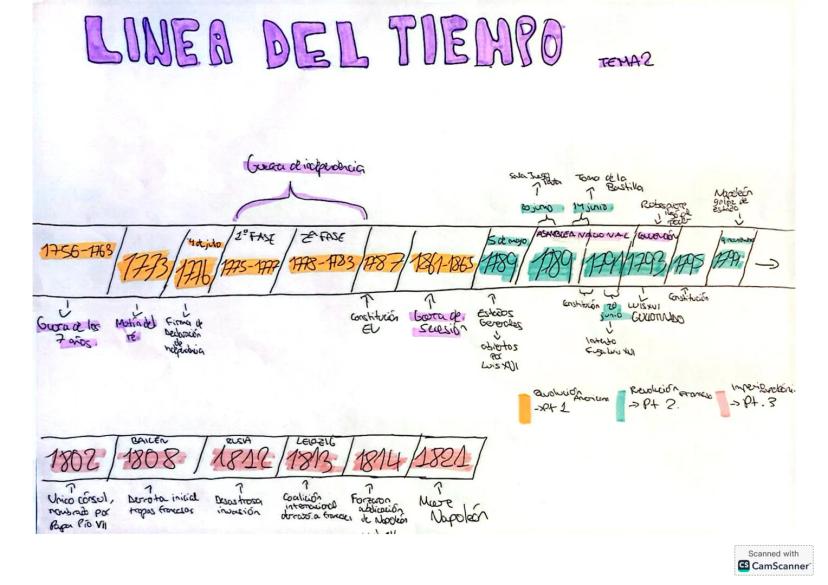 LINEA DEL TIEMPO
TEMA 2
Guerra de independencia
Sala Juego
Pelota
20 junio
Toma de la
Bastilla
14 junio
Robespierre
Napoleón
golpe de
estado
9 noviembre
1756-1763
1773
4 de julio
1776
1º FASE
1775-1777
2º FASE
1778-1783
1787
1861-1865
5 de mayo
1789
ASAMBLEA NACIONAL
1789
1791
CONVENCIÓN
1793
1795
1799
Guerra de los
7 años.
Motín del
té
Firma de
Declaración
de
independencia
Constitución
EU
Guerra de
Secesión
Estados
Generales
abiertos
por
Luis XVI
Constitución
20
junio
Intento
fuga Luis XVI
LUIS XVI
GUILLOTINADO
Constitución
Revolución Americana
→ Pt 1
Revolución Francesa
→ Pt 2.
Imperio Napoleónico
→ Pt. 3
1802
BAILÉN
1808
RUSIA
1812
LEIPZIG
1813
1814
1821
Único cónsul,
nombrado por
Papa Pío VII
Derrota inicial
tropas francesas
Desastrosa
invasión
Coalición
internacional
derrota a franceses
Forzaron
abdicación
de Napoleón
Muere
Napoleón
Scanned with
CS CamScanner